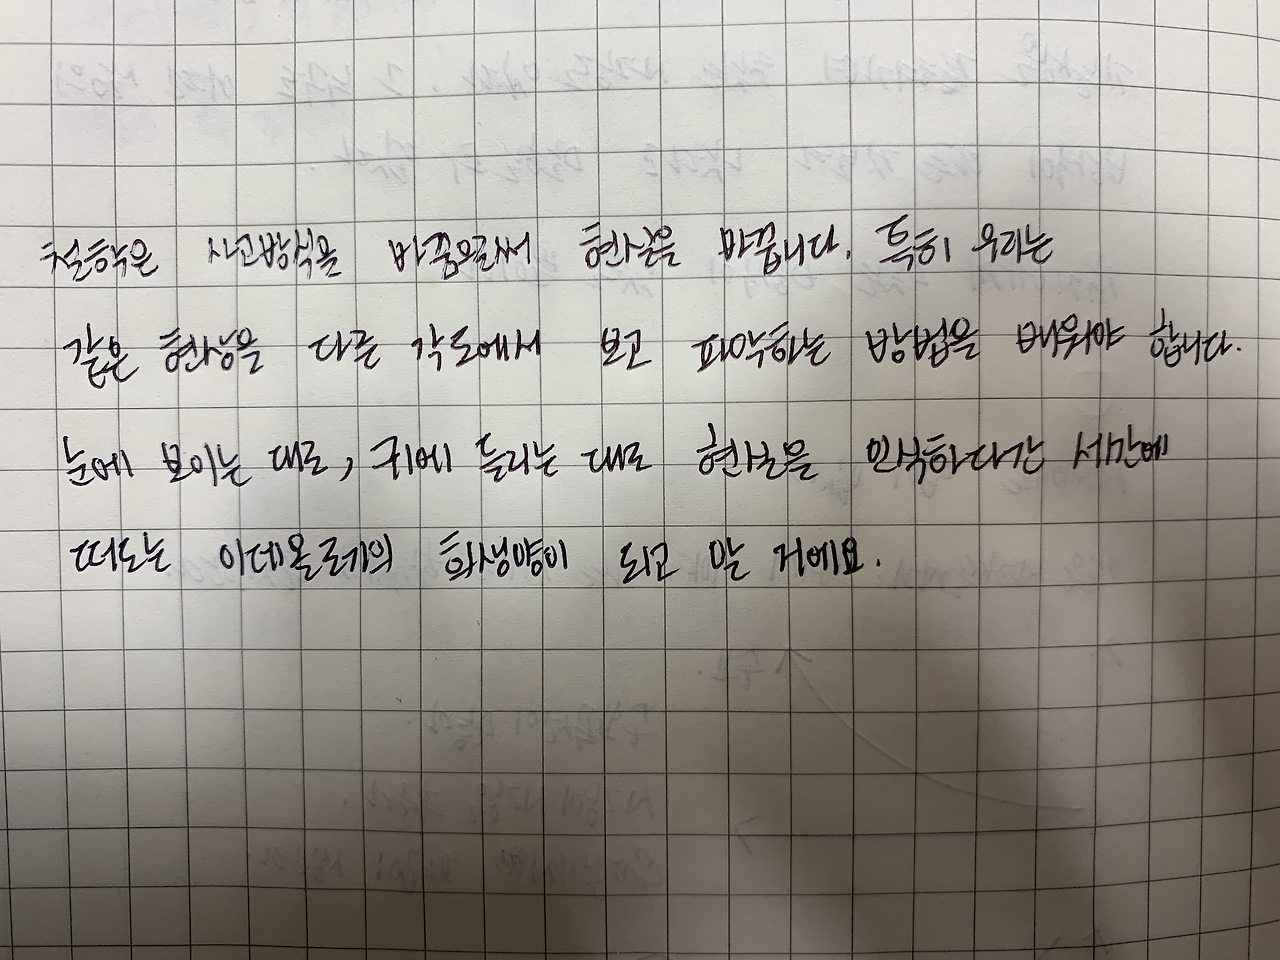 철학은 사고방식을 바꿈으로써 현실을 바꿉니다. 특히 우리는
같은 현상을 다른 각도에서 보고 파악하는 방법을 배워야 합니다.
눈에 보이는 대로, 귀에 들리는 대로 현실을 인식하다간 세간에
떠도는 이데올로기의 희생양이 되고 말 거에요.